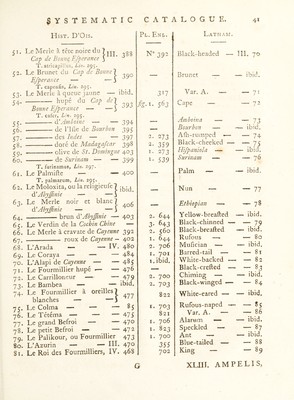 SYSTEMATIC CATALOGUE. 41
HIST. D'OIS. PL. ENL. LATHAM.
51. Le Merle à tête noire du Cap de Bonne Esperance } III. 388 N° 392 Black-headed — III. 70
T. atricapillus, Lin. 295.
52. Le Brunet du Cap de Bonne Esperance } 390 Brunet — ibid.
T. capensis, Lin. 295.
53. Le Merle à queue jaune — ibid. 317 Var. A. — 71
54. —— hupé du Cap de Bonne Esperance — — } 393 fig. 1. 563 Cape — 72
T. cafer, Lin. 295.
55. —— d'Amboine — 394 Amboina — 73
56. —— de l'Isle de Bourbon 395 Bourbon — ibid.
57. —— des Indes — 397 2. 273 Ash-rumped — 74
58. —— doré de Madagascar 398 2. 359 Black-cheeked — 75
59. —— olive de St. Domingue 403 1. 273 Hispaniola — ibid.
60. —— de Surinam — 399 1. 539 Surinam — 76
T. surinamus, Lin. 297.
61. Le Palmiste — 400 Palm — ibid.
T. palmarum, Lin. 295.
62. Le Moloxita, ou la religieuse d'Abyssinie — } ibid. Nun — 77
63. Le Merle noir et blanc d'Abyssinie — } 406 Ethiopian — 78
64. —— brun d'Abyssinie — 403 Yellow-breasted — ibid.
65. Le Verdin de la Cochin Chine — 2. 644 Black-chinned — 79
66. Le Merle à cravate de Cayenne 392 3. 643 Black-breasted — ibid.
67. —— roux de Cayenne — 402 2. 560 Rufous — 80
68. L'Arada — IV. 480 1. 644 Musician — ibid.
69. Le Coraya — 484 2. 706 Barred-tail — 81
70. L'Alapi de Cayenne — 485 1. 701 White-backed — 82
71. Le Fourmillier hupé — 476 Black-crested — 83
72. Le Carillonneur — 479 2. 700 Chiming — ibid.
73. Le Bambla — ibid. 2. 703 Black-winged — 84
74. Le Fourmillier à oreilles blanches — } 477 822 White-eared — ibid.
75. Le Colma — 85 1. 703 Rufous-naped — 85
76. Le Tétéma — 475 821 Var. A. — 86
77. Le grand Befroi — 470 1. 706 Alarum — ibid.
78. Le petit Befroi — 472 1. 823 Speckled — 87
79. Le Palikour, ou Fourmillier 473 1. 700 Ant — ibid.
80. L'Azurin — III. 470 355 Blue-tailed — 88
81. Le Roi des Fourmilliers, IV. 468 702 King — 89
G XLIII. AMPELIS,